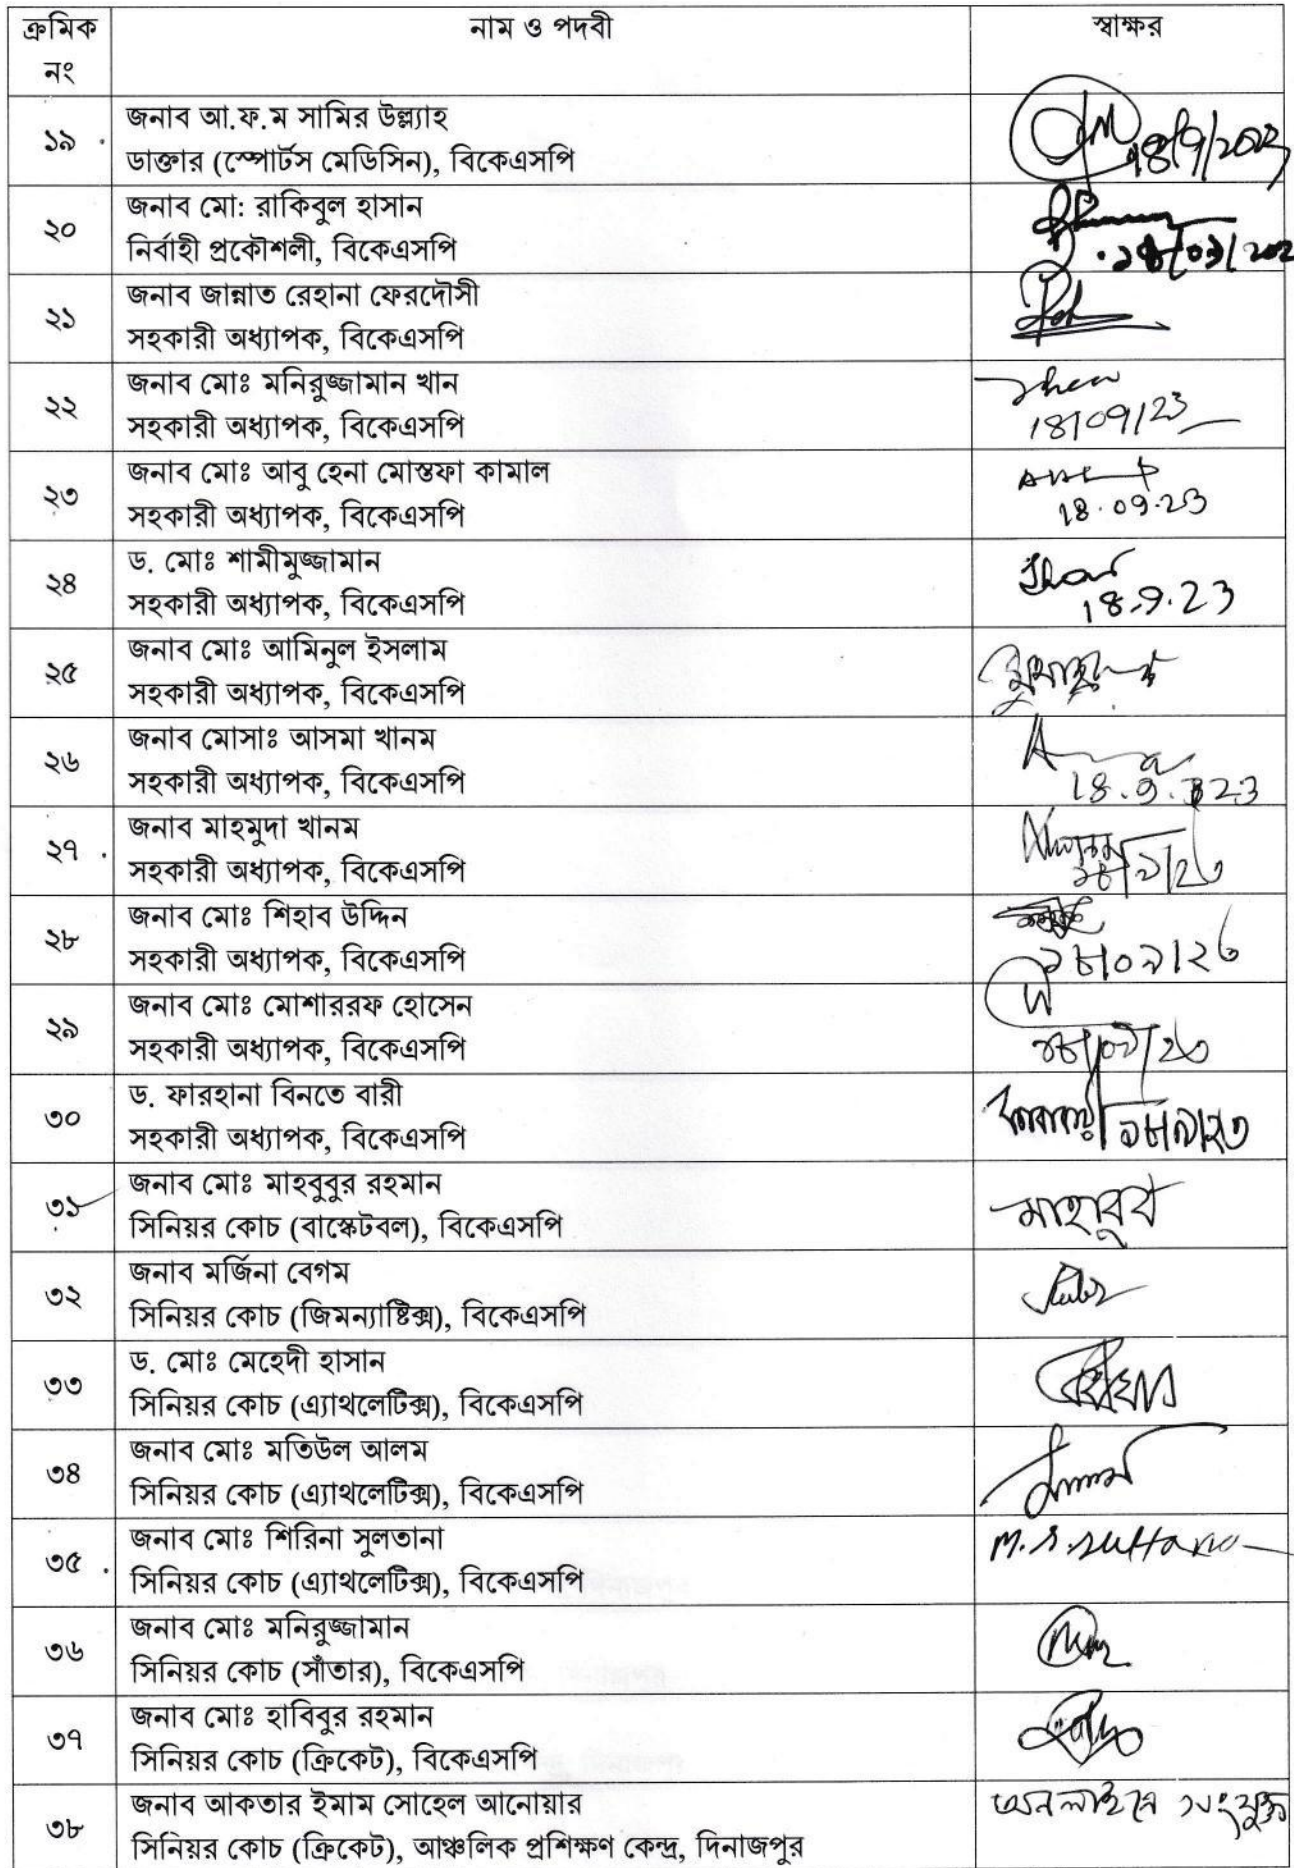 ক্রমিক নং নাম ও পদবী স্বাক্ষর
১৯ জনাব আ.ফ.ম সামির উল্ল্যাহ
ডাক্তার (স্পোর্টস মেডিসিন), বিকেএসপি
18/9/2023
২০ জনাব মো: রাকিবুল হাসান
নির্বাহী প্রকৌশলী, বিকেএসপি
২১ জনাব জান্নাত রেহানা ফেরদৌসী
সহকারী অধ্যাপক, বিকেএসপি
২২ জনাব মোঃ মনিরুজ্জামান খান
সহকারী অধ্যাপক, বিকেএসপি
18/09/23
২৩ জনাব মোঃ আবু হেনা মোস্তফা কামাল
সহকারী অধ্যাপক, বিকেএসপি
18.09.23
২৪ ড. মোঃ শামীমুজ্জামান
সহকারী অধ্যাপক, বিকেএসপি
18.9.23
২৫ জনাব মোঃ আমিনুল ইসলাম
সহকারী অধ্যাপক, বিকেএসপি
২৬ জনাব মোসাঃ আসমা খানম
সহকারী অধ্যাপক, বিকেএসপি
18.9.23
২৭ জনাব মাহমুদা খানম
সহকারী অধ্যাপক, বিকেএসপি
১৮/৯/২৩
২৮ জনাব মোঃ শিহাব উদ্দিন
সহকারী অধ্যাপক, বিকেএসপি
১৮/০৯/২৩
২৯ জনাব মোঃ মোশাররফ হোসেন
সহকারী অধ্যাপক, বিকেএসপি
১৮/০৯/২৩
৩০ ড. ফারহানা বিনতে বারী
সহকারী অধ্যাপক, বিকেএসপি
১৮/৯/২৩
৩১ জনাব মোঃ মাহবুবুর রহমান
সিনিয়র কোচ (বাস্কেটবল), বিকেএসপি
মাহাবুব
৩২ জনাব মর্জিনা বেগম
সিনিয়র কোচ (জিমন্যাষ্টিক্স), বিকেএসপি
৩৩ ড. মোঃ মেহেদী হাসান
সিনিয়র কোচ (এ্যাথলেটিক্স), বিকেএসপি
৩৪ জনাব মোঃ মতিউল আলম
সিনিয়র কোচ (এ্যাথলেটিক্স), বিকেএসপি
৩৫ জনাব মোঃ শিরিনা সুলতানা
সিনিয়র কোচ (এ্যাথলেটিক্স), বিকেএসপি
M.S.Sultana
৩৬ জনাব মোঃ মনিরুজ্জামান
সিনিয়র কোচ (সাঁতার), বিকেএসপি
৩৭ জনাব মোঃ হাবিবুর রহমান
সিনিয়র কোচ (ক্রিকেট), বিকেএসপি
৩৮ জনাব আকতার ইমাম সোহেল আনোয়ার
সিনিয়র কোচ (ক্রিকেট), আঞ্চলিক প্রশিক্ষণ কেন্দ্র, দিনাজপুর
অনলাইনে সংযুক্ত